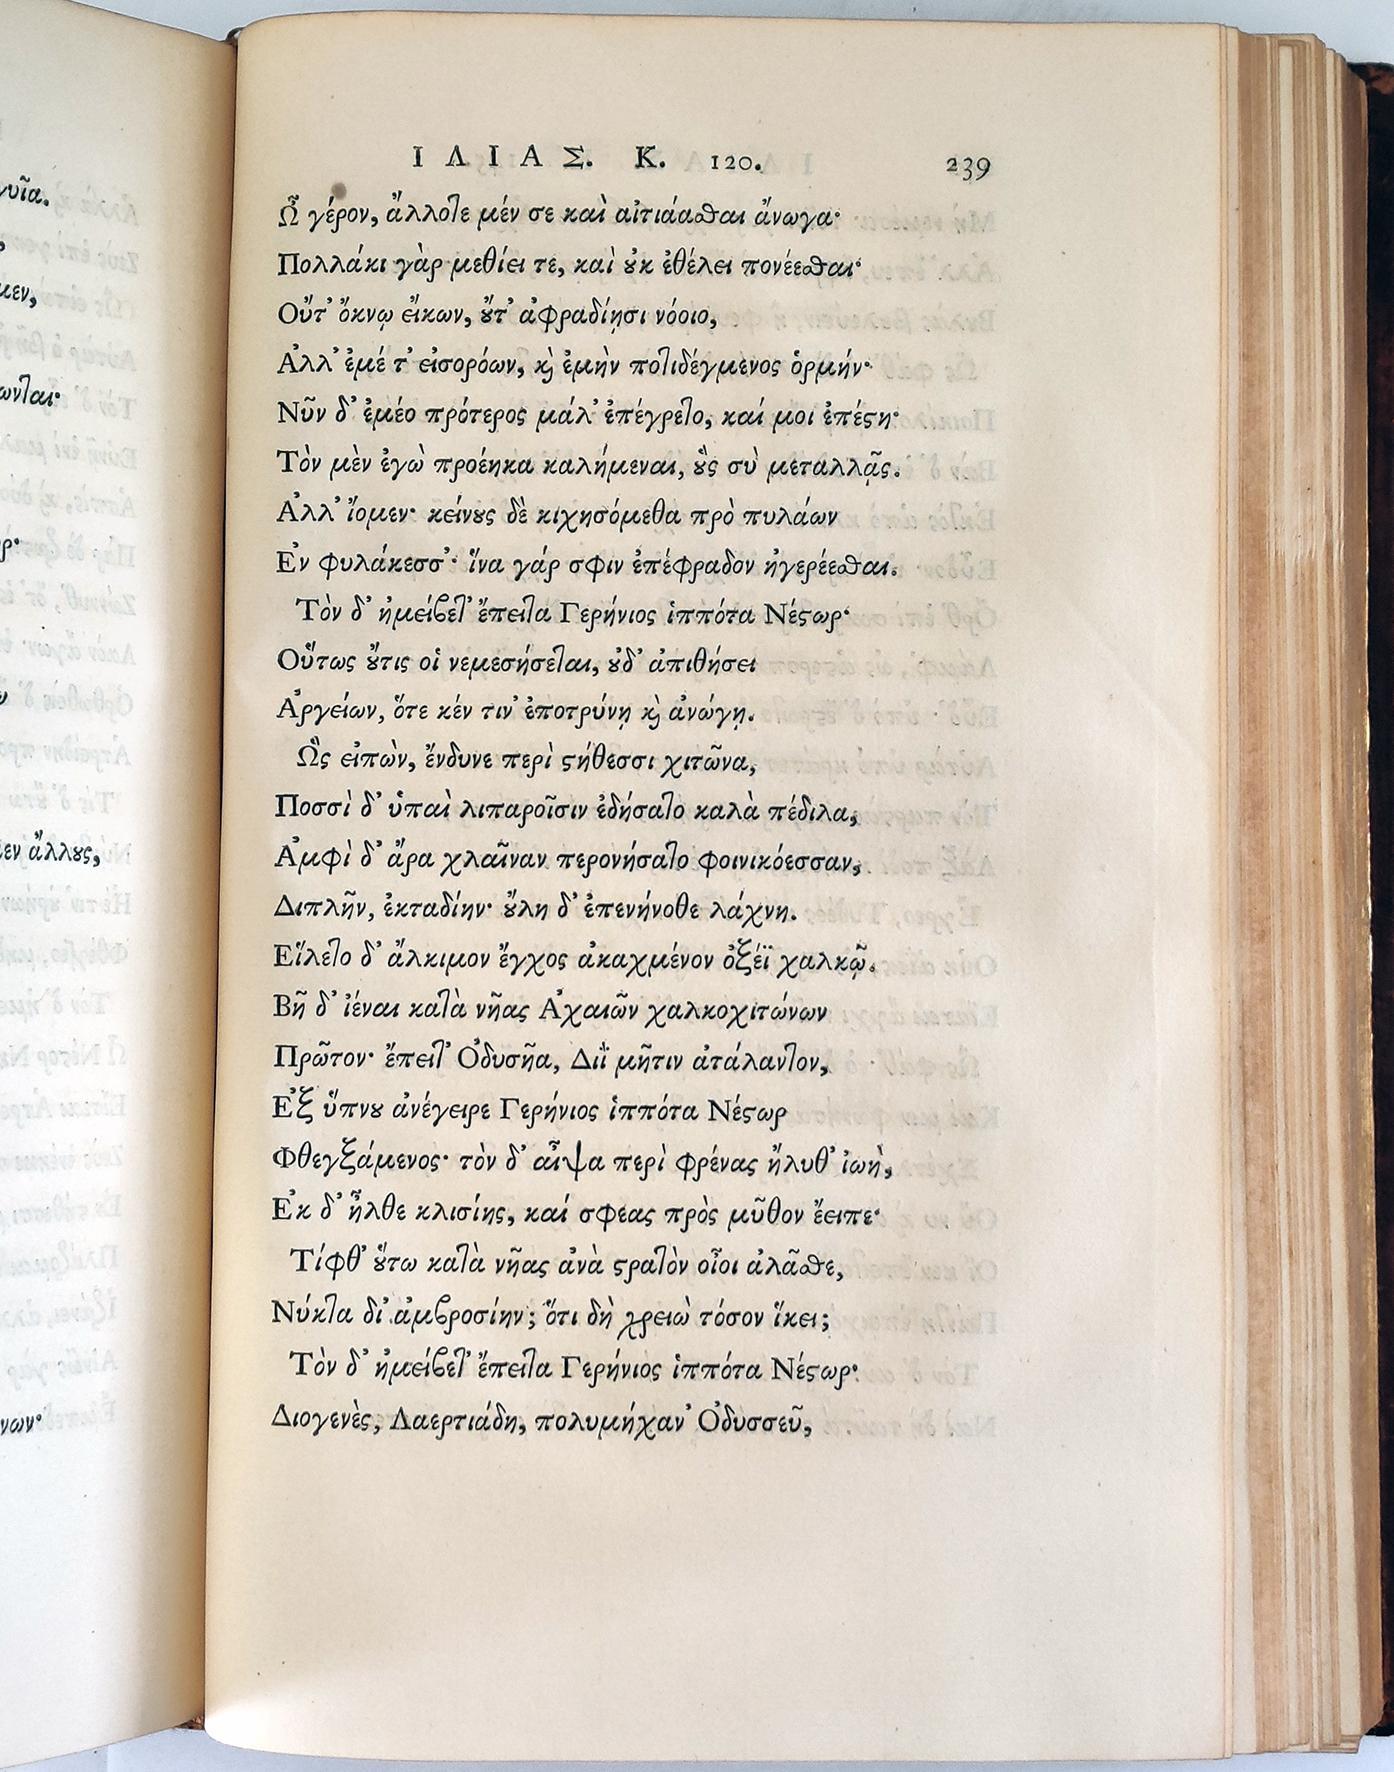 γυῖα.
μεν,
ωνται·
ρ·
εν ἄλλους,
νων·
ΙΛΙΑΣ. Κ. 120. 239
Ὦ γέρον, ἄλλοτε μέν σε καὶ αἰτιάασθαι ἄνωγα·
Πολλάκι γὰρ μεθίει τε, καὶ οὐκ ἐθέλει πονέεσθαι·
Οὔτ' ὄκνῳ εἴκων, οὔτ' ἀφραδίῃσι νόοιο,
Ἀλλ' ἐμέ τ' εἰσορόων, καὶ ἐμὴν ποτιδέγμενος ὁρμήν·
Νῦν δ' ἐμέο πρότερος μάλ' ἐπέγρετο, καί μοι ἐπέστη·
Τὸν μὲν ἐγὼ προέηκα καλήμεναι, οὓς σὺ μεταλλᾷς.
Ἀλλ' ἴομεν· κείνους δὲ κιχησόμεθα πρὸ πυλάων
Ἐν φυλάκεσσ'· ἵνα γάρ σφιν ἐπέφραδον ἠγερέεσθαι.
Τὸν δ' ἠμείβετ' ἔπειτα Γερήνιος ἱππότα Νέστωρ·
Οὕτως οὔτις οἱ νεμεσήσεται, οὐδ' ἀπιθήσει
Ἀργείων, ὅτε κέν τιν' ἐποτρύνῃ καὶ ἀνώγῃ.
Ὣς εἰπὼν, ἔνδυνε περὶ στήθεσσι χιτῶνα,
Ποσσὶ δ' ὑπαὶ λιπαροῖσιν ἐδήσατο καλὰ πέδιλα,
Ἀμφὶ δ' ἄρα χλαῖναν περονήσατο φοινικόεσσαν,
Διπλῆν, ἐκταδίην· οὔλη δ' ἐπενήνοθε λάχνη.
Εἵλετο δ' ἄλκιμον ἔγχος ἀκαχμένον ὀξέϊ χαλκῷ.
Βῆ δ' ἰέναι κατὰ νῆας Ἀχαιῶν χαλκοχιτώνων
Πρῶτον· ἔπειτ' Ὀδυσῆα, Διῒ μῆτιν ἀτάλαντον,
Ἐξ ὕπνου ἀνέγειρε Γερήνιος ἱππότα Νέστωρ
Φθεγξάμενος· τὸν δ' αἶψα περὶ φρένας ἤλυθ' ἰωὴ,
Ἐκ δ' ἦλθε κλισίης, καί σφεας πρὸς μῦθον ἔειπε·
Τίφθ' οὕτω κατὰ νῆας ἀνὰ στρατὸν οἶοι ἀλᾶσθε,
Νύκτα δι' ἀμβροσίην; ὅτι δὴ χρειὼ τόσον ἵκει;
Τὸν δ' ἠμείβετ' ἔπειτα Γερήνιος ἱππότα Νέστωρ·
Διογενὲς, Λαερτιάδη, πολυμήχαν' Ὀδυσσεῦ,